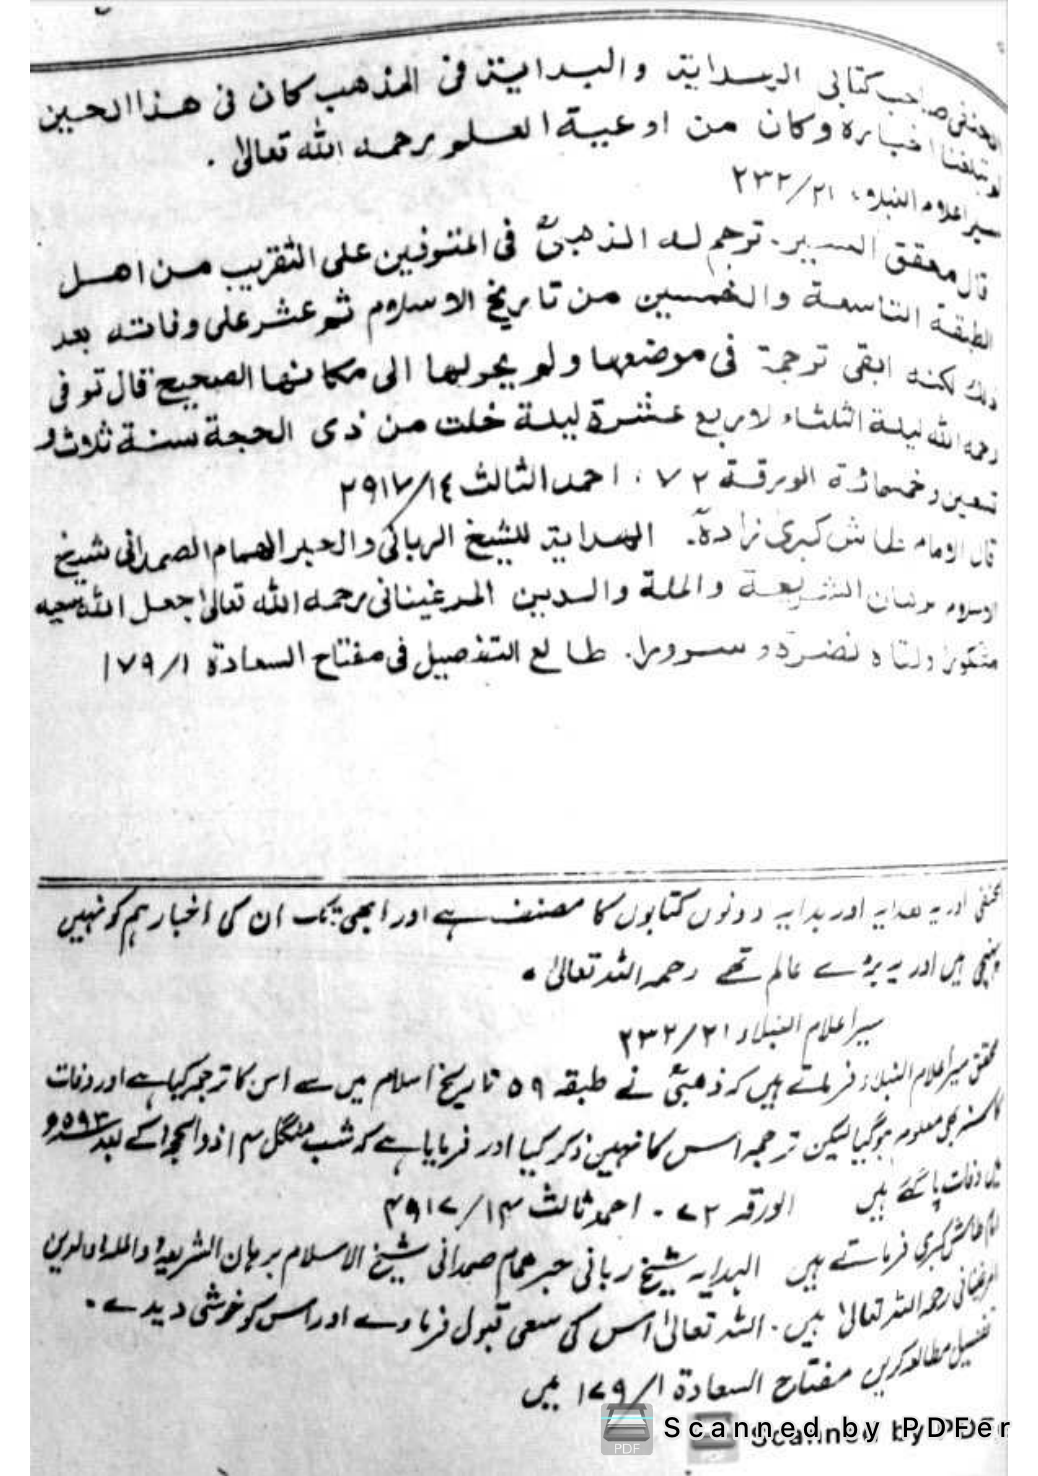 الحنفی صاحب کتابی الهدایة والبدایة فی المذهب کان فی هذا الحین
لم تبلغنا اخباره وکان من اوعیة العلم رحمه الله تعالیٰ .
سیر اعلام النبلاء ۲۳۲/۲۱
قال محقق السیر. ترجم له الذهبیؒ فی المتوفین علی التقریب من اهل
الطبقة التاسعة والخمسین من تاریخ الاسلام ثم عثر علی وفاته بعد
ذلك لکنه ابقی ترجمة فی موضعها ولم یحولها الی مکانها الصحیح قال توفی
رحمه الله لیلة الثلثاء لاربع عشرة لیلة خلت من ذی الحجة سنة ثلاث و
تسعین وخمسمائة الورقة ۷۲ ، احمد الثالث ۲۹۱۷/۱٤
قال الامام طاش کبری زادهؒ. الهدایة للشیخ الربانی والحبر الهمام الصمدانی شیخ
الاسلام برهان الشریعة والملة والدین المرغینانی رحمه الله تعالیٰ جعل الله سعیه
مشکورا ولقاه نضرة وسرورا. طالع التفصیل فی مفتاح السعادة ۱۷۹/۱
حنفی اور یہ ھدایہ اور بدایہ دونوں کتابوں کا مصنف ہے اور ابھی تک ان کی اخبار ہم کو نہیں
پہنچی ہیں اور یہ بڑے عالم تھے رحمہ اللہ تعالیٰ ۔
سیر اعلام النبلاء ۲۳۲/۲۱
محقق سیر اعلام النبلاء فرماتے ہیں کہ ذھبیؒ نے طبقہ ۵۹ تاریخ اسلام میں سے اس کا ترجمہ کیا ہے اور وفات
کا سنہ بھی معلوم ہو گیا لیکن ترجمہ اس کا نہیں ذکر کیا اور فرمایا ہے کہ شب منگل ۱۴ ذوالحجہ کے بعد ۵۹۳
میں وفات پا گئے ہیں الورقہ ۷۲ ۔ احمد ثالث ۲۹۱۷/۱۴
امام طاش کبری فرماتے ہیں الہدایہ شیخ ربانی حبر ھمام صمدانی شیخ الاسلام برہان الشریعۃ والملۃ والدین
المرغینانی رحمہ اللہ تعالیٰ ہیں ۔ اللہ تعالیٰ اس کی سعی قبول فرماوے اور اس کو خوشی دیدے ۔
تفصیل مطالعہ کریں مفتاح السعادة ۱۷۹/۱ میں
PDF
Scanned by PDFer
Scanned by PDFer